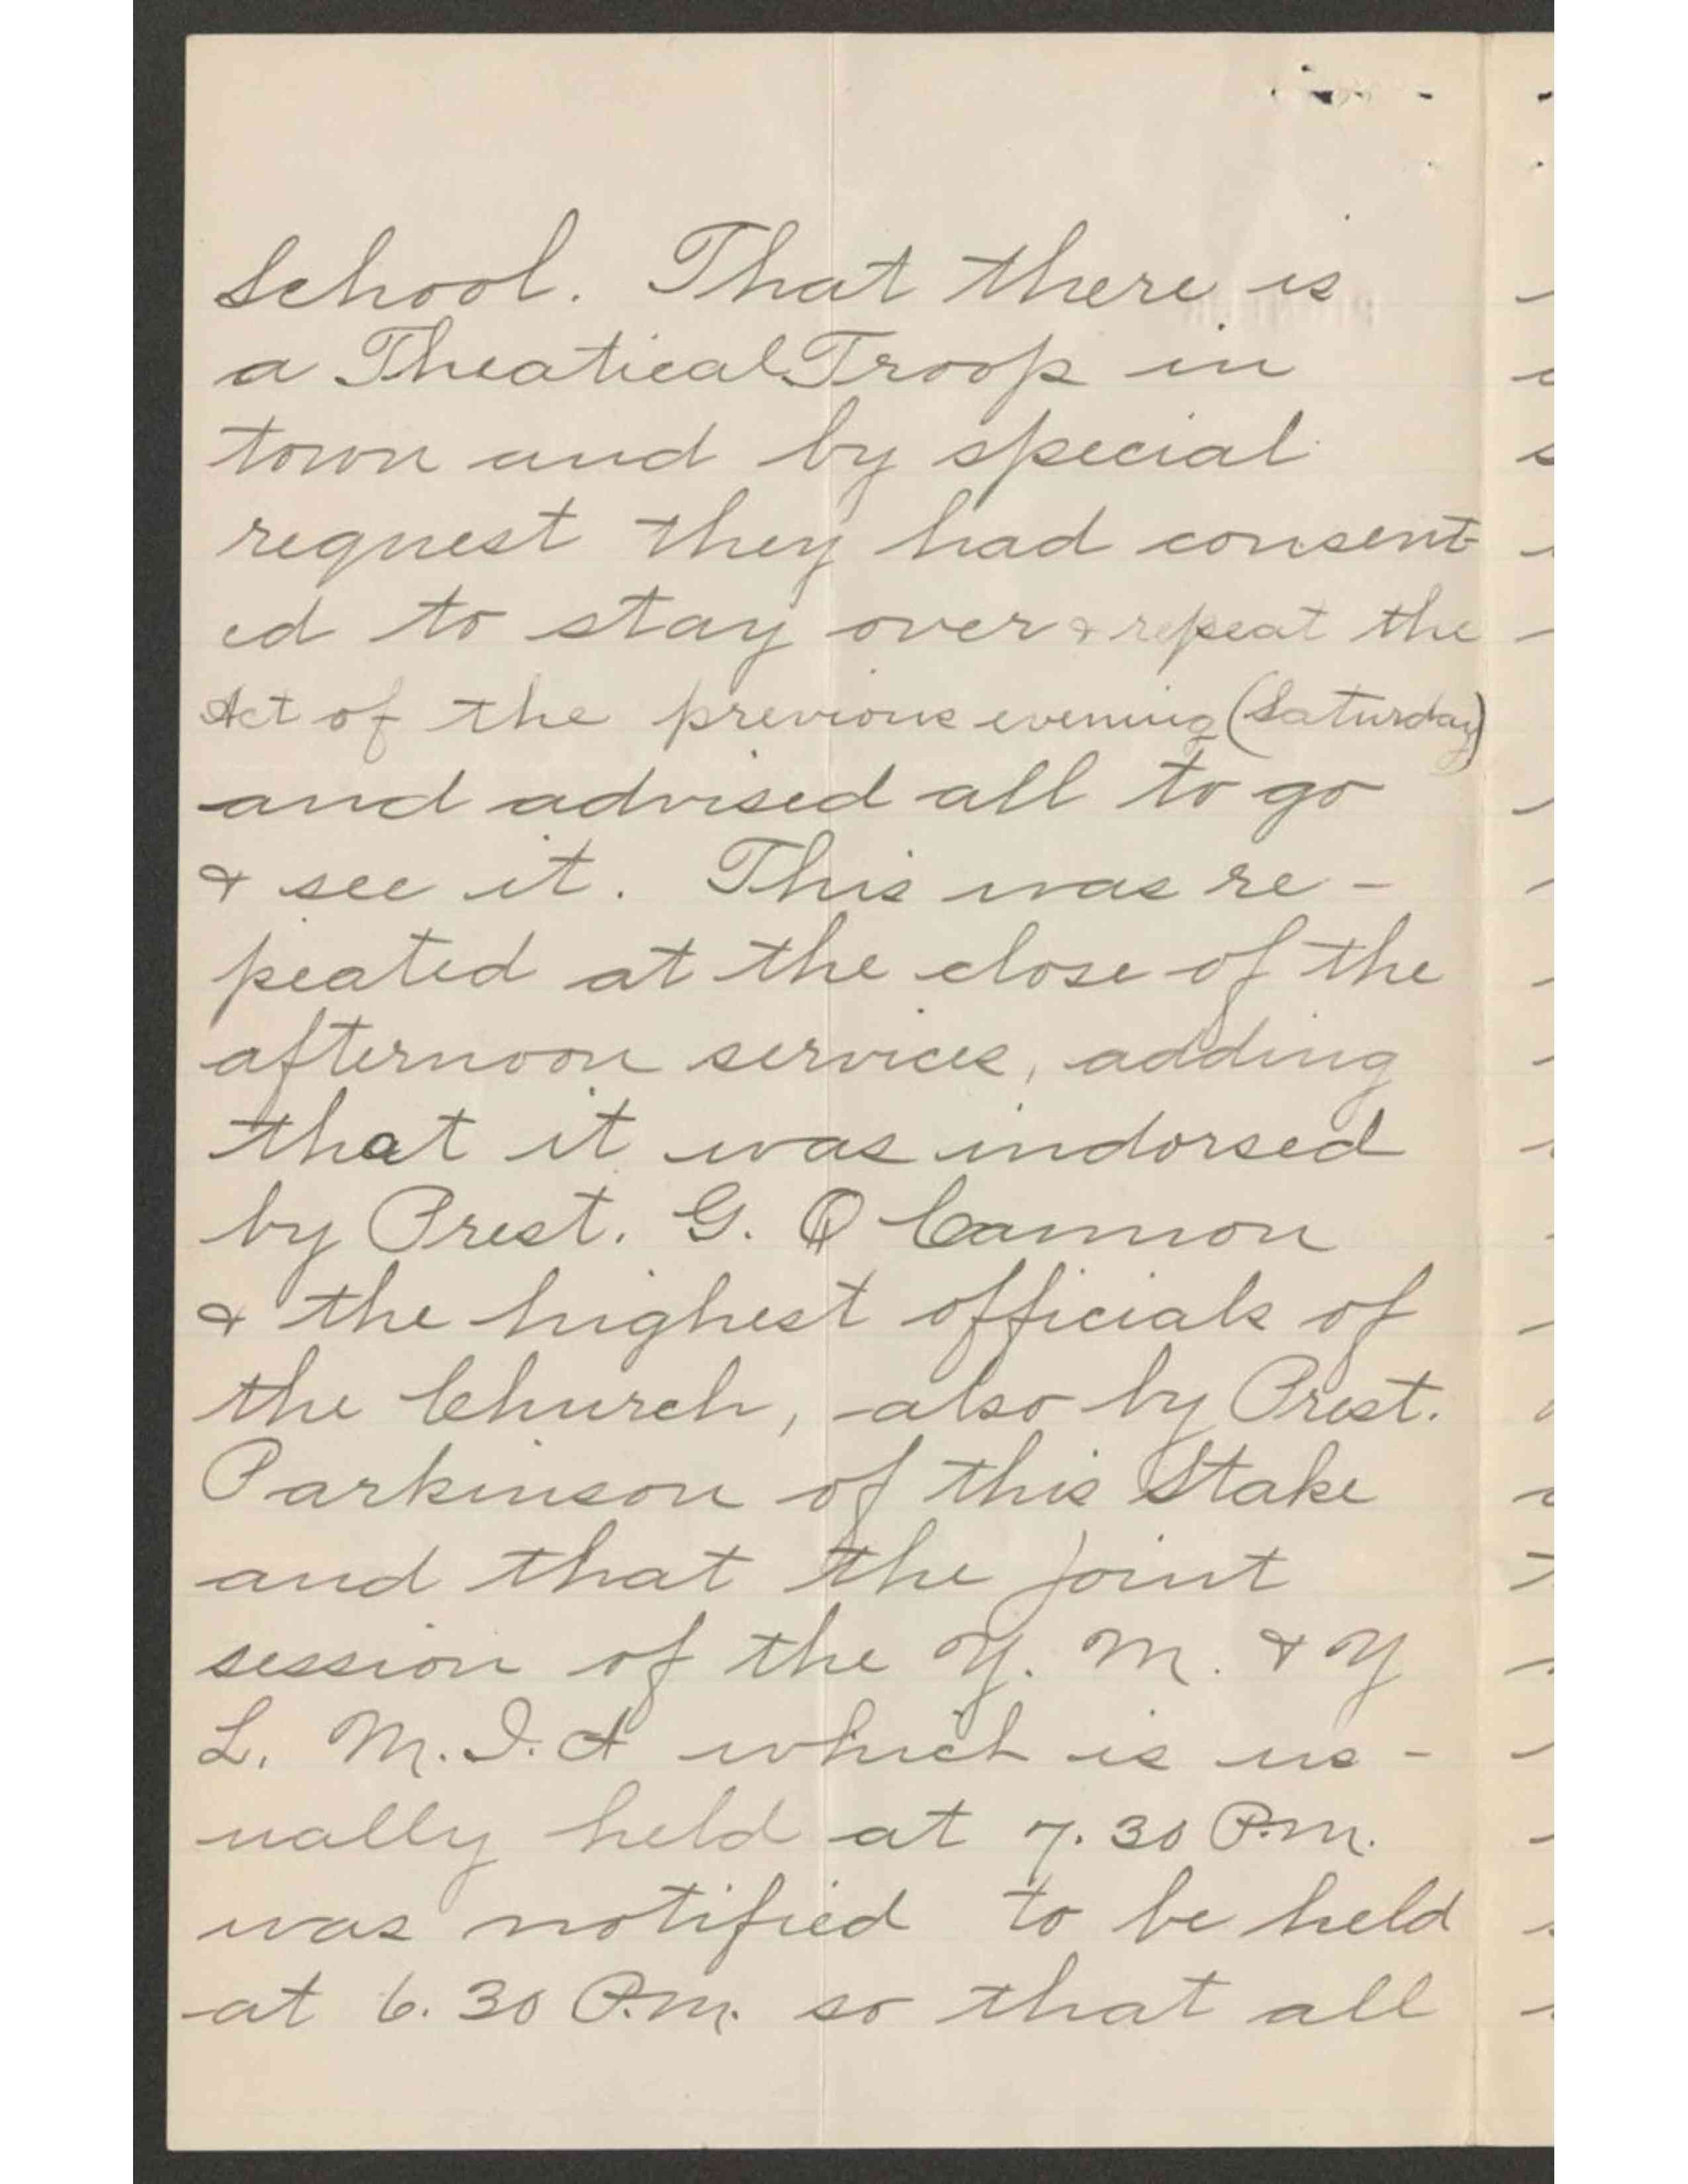 School. That there is
a Theatical Troop in
town and by special
request they had consent-
ed to stay over & repeat the
Act of the previous evening (Saturday)
and advised all to go
& see it. This was re-
peated at the close of the
afternoon services, adding
that it was indorsed
by Prest. G. Q Cannon
& the highest officials of
the Church, also by Prest.
Parkinson of this Stake
and that the joint
session of the Y. M. & Y
L. M. I. A which is us-
ually held at 7.30 P.m.
was notified to be held
at 6.30 P.m. so that all